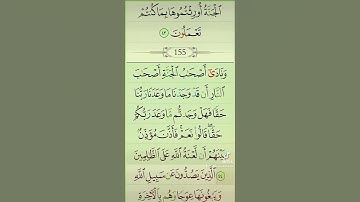 الْجَنَّةُ أُورِثْتُمُوهَا بِمَا كُنتُمْ
تَعْمَلُونَ ٤٣
155
وَنَادَىٰ أَصْحَابُ الْجَنَّةِ أَصْحَابَ
النَّارِ أَن قَدْ وَجَدْنَا مَا وَعَدَنَا رَبُّنَا
حَقًّا فَهَلْ وَجَدتُّم مَّا وَعَدَ رَبُّكُمْ
حَقًّا قَالُوا نَعَمْ فَأَذَّنَ مُؤَذِّنٌ
بَيْنَهُمْ أَن لَّعْنَةُ اللَّهِ عَلَى الظَّالِمِينَ
٤٤ الَّذِينَ يَصُدُّونَ عَن سَبِيلِ اللَّهِ
وَيَبْغُونَهَا عِوَجًا وَهُم بِالْآخِرَةِ